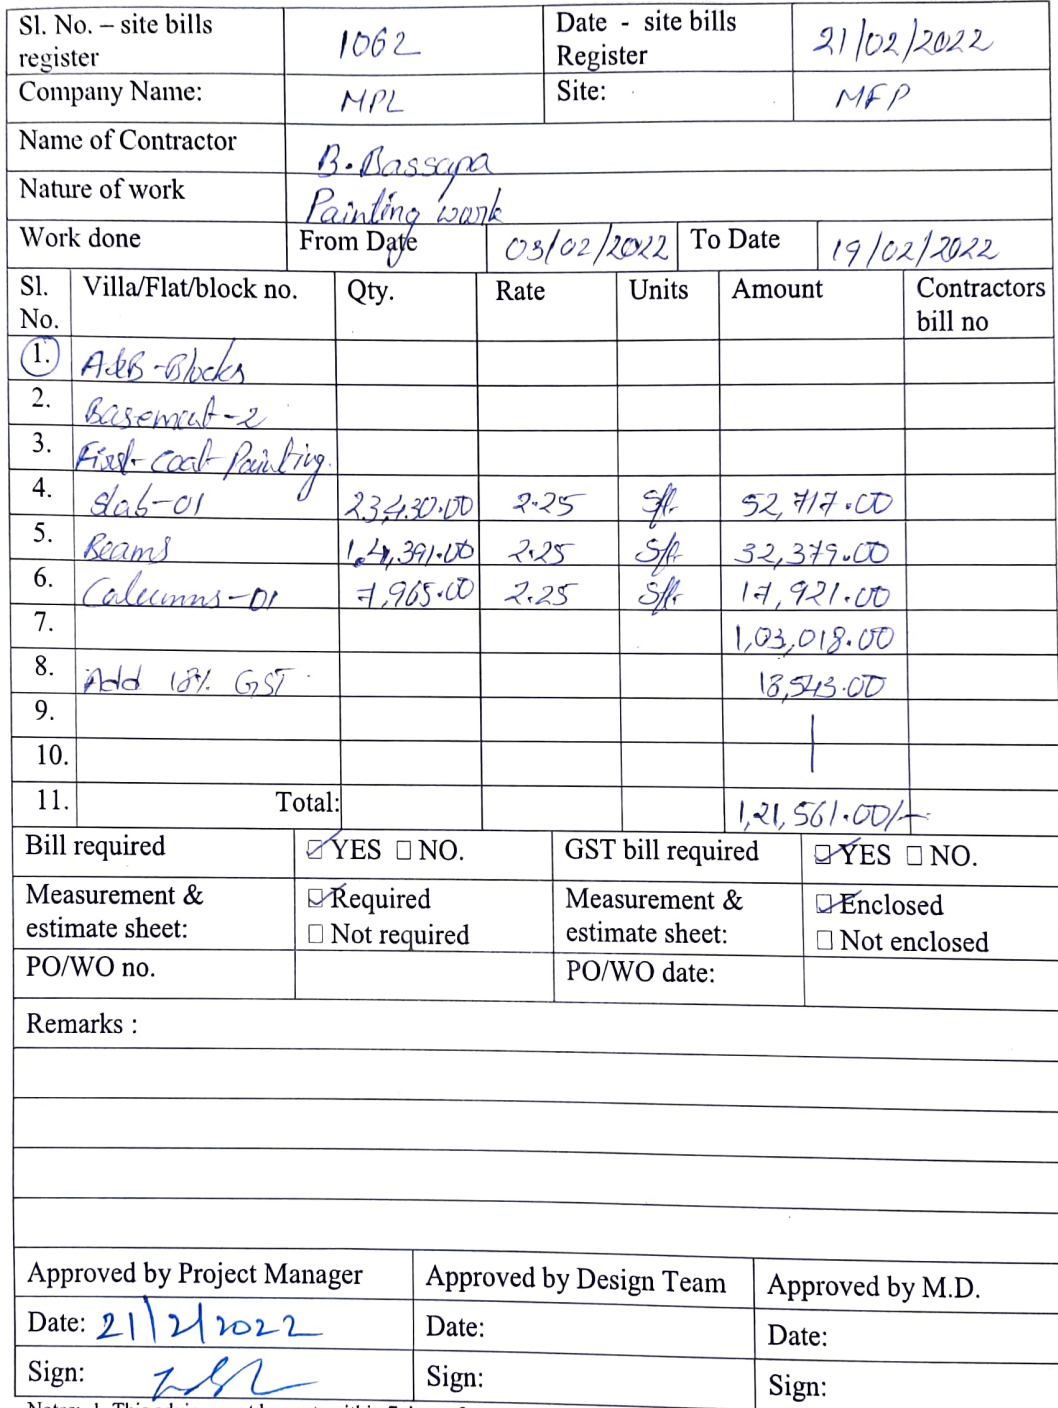 Sl. No. – site bills register 1062 Date - site bills Register 21/02/2022
Company Name: MPL Site: MFP
Name of Contractor B. Bassapa
Nature of work Painting work
Work done From Date 03/02/2022 To Date 19/02/2022
Sl. No. Villa/Flat/block no. Qty. Rate Units Amount Contractors bill no
1. A&B-Blocks
2. Basement-2
3. First-Coat-Painting.
4. Slab-01 23,430.00 2.25 Sft. 52,717.00
5. Beams 1,4,391.00 2.25 Sft. 32,379.00
6. Calumns-01 7,965.00 2.25 Sft. 17,921.00
7. 1,03,018.00
8. Add 18% GST 18,543.00
9.
10.
11. Total: 1,21,561.00/-
Bill required YES NO. GST bill required YES NO.
Measurement & estimate sheet: Required Not required Measurement & estimate sheet: Enclosed Not enclosed
PO/WO no. PO/WO date:
Remarks :
Approved by Project Manager Approved by Design Team Approved by M.D.
Date: 21/2/2022 Date: Date:
Sign: Sign: Sign: